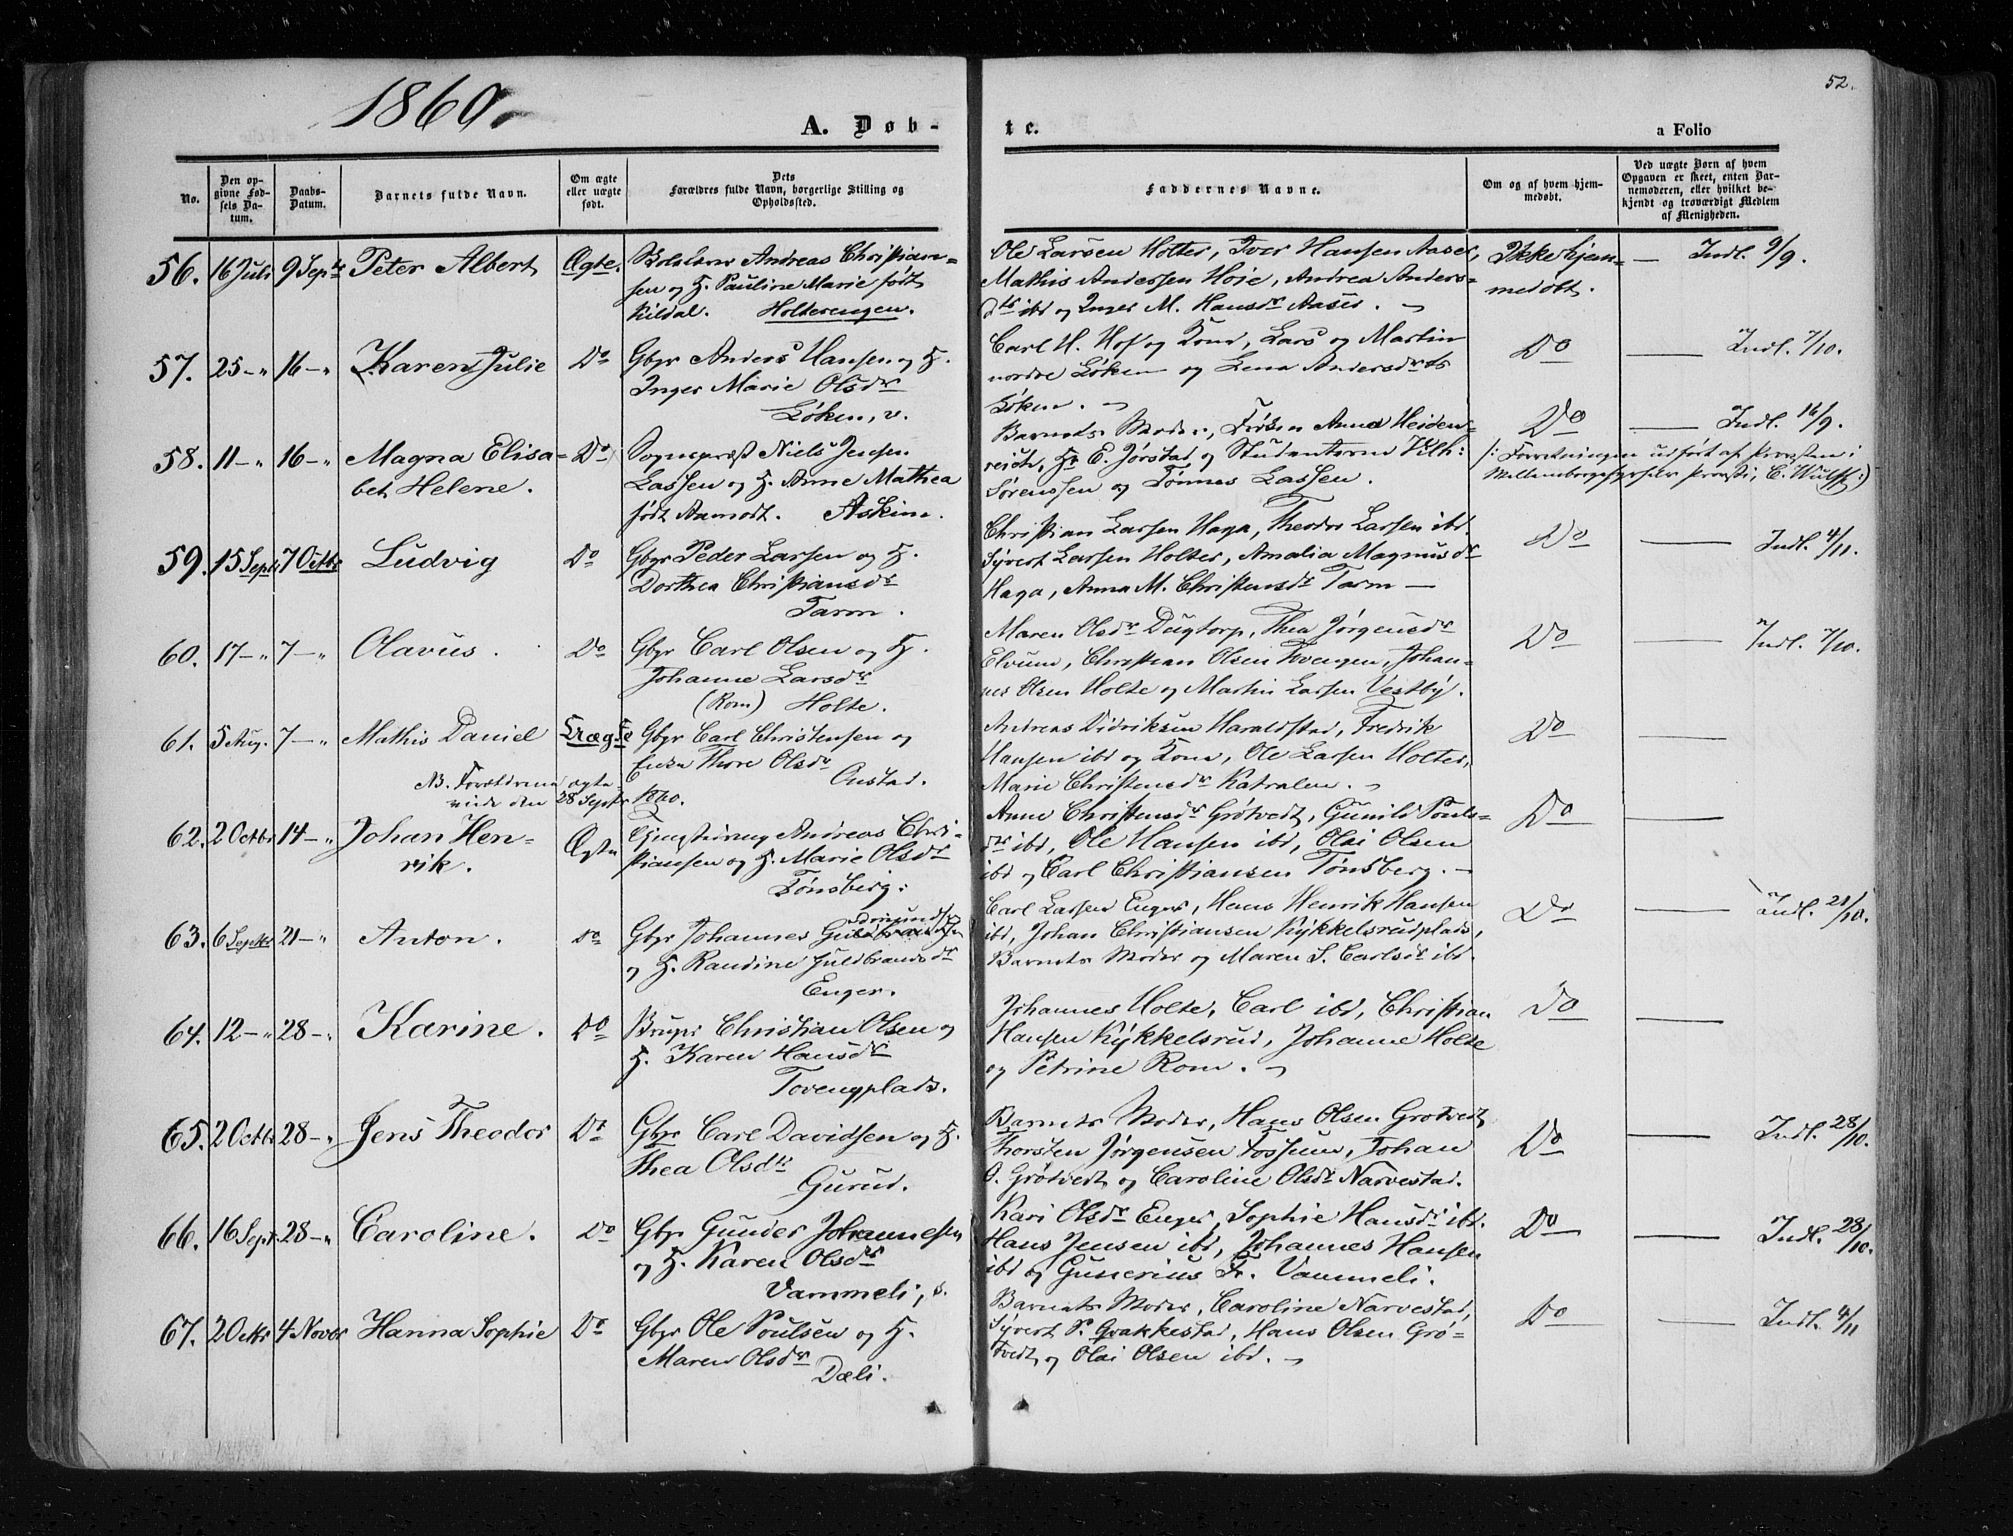 1860.
52.
A. Døb-
te.
a Folio
No.
Den op-
givne Fød-
sels Da-
tum.
Daabs-
Datum.
Barnets fulde Navn.
Om ægte
eller uægte
født.
Dets
Forældres fulde Navn, borgerlige Stilling og
Opholdssted.
Faddernes Navne.
Om og af hvem hjem-
medøbt.
Ved uægte Børn af hvem
Opgaven er skeet, enten Bar-
nemoderen, eller hvilket be-
kjendt og troværdigt Medlem
af Menigheden.
56. 16 Juli 9 Septr Peter Albert Ægte. Andreas Christian-
sen og H. Pauline Marie født
Kildal. Holterengen.
Ole Larsen Holter, Iver Hansen Aaser,
Mathis Anderssen Hoie, Andrea Anders-
dtr ibd og Inger M. Hansdr Aaser.
Ikke hjem-
medøbt.
— Indl. 9/9.
57. 25 – „ 16 – „ Karen Julie Do Gbr Anders Hansen og H.
Inger Marie Olsdr
Løken, v.
Carl H. Hof og Kone, Lars og Martin
nordre Løken og Lena Andersdtr
Løken.
Do — Indl. 7/10.
58. 11 – „ 16 – „ Magna Elisa-
bet Helene. Do Sogneprest Niels Jensen
Lassen og H. Anne Mathea
født Aamodt. Askim.
Barnets Moder, Frøken Anna Heiden-
reich, Hr E. Jørstad og Studenterne Vilh:
Sørenssen og Tønnes Lassen.
Do — Indl. 16/9.
/: Forretningen udført af Provsten i
Mellemborgesyssels Provsti, C. Wulff :/
59. 15 Septr 7 Octbr Ludvig Do Gbr Peder Larsen og H.
Dorthea Christiansdr
Tarm.
Christian Larsen Haga, Theodor Larsen ibd
Syvert Larsen Holter, Amalia Magnusdr
Haga, Anna M. Christensdr Tarm —
Do — Indl. 4/11.
60. 17 – „ 7 – „ Olavus. Do Gbr Carl Olsen og H.
Johanne Larsdr
(Rom) Holte.
Maren Olsdr Dugtorp, Thea Jørgensdr
Elvum, Christian Olsen Tovengen, Johan-
nes Olsen Holte og Martin Larsen Vestby.
Do — Indl. 7/10.
61. 5 Aug. 7 – „ Mathis Daniel Uægte Gbr Carl Christensen og
Enke Thore Olsdr
Onstad.
NB. Forældrene ægte-
viede den 28 Septr 1860.
Andreas Didriksen Haraldstad, Fredrik
Hansen ibd og Kone, Ole Larsen Holter,
Marie Christensdr Katralen.
Do —
62. 2 Octbr 14 – „ Johan Hen-
rik. Ægte Andreas Chri-
stiansen og H. Marie Olsdr
Tønsberg.
Anne Christensdr Grøtvedt, Gunild Pouls-
dtr ibd, Ole Hansen ibd, Olai Olsen
ibd og Carl Christiansen Tønsberg. —
Do —
63. 6 Septr 21 – „ Anton. Do Gbr Johannes
og H. Randine Guldbrandsdr
Enger.
Carl Larsen Enger, Hans Henrik Hansen
ibd, Johan Christiansen Kykkelsrudplads,
Barnets Moder og Maren S. Carlsdr ibd.
Do — Indl. 21/10.
64. 12 – „ 28 – „ Karine. Do Bruger Christian Olsen og
H. Karen Hansdr
Tovengplads.
Johannes Holte, Carl ibd, Christian
Hansen Kykkelsrud, Johanne Holte
og Petrine Rom.
Do —
65. 2 Octbr 28 – „ Jens Theodor Do Gbr Carl Davidsen og H.
Thea Olsdtr
Gurud.
Barnets Moder, Hans Olsen Grøtvedt
Thorsten Jørgensen Fossum, Johan
O. Grøtvedt og Caroline Olsdr Narvestad.
Do — Indl. 28/10.
66. 16 Septr 28 – „ Caroline. Do Gbr Gunder Johannesen
og H. Karen Olsdr
Vammeli, s.
Kari Olsdr Enger, Sophie Hansdr ibd.
Hans Jensen ibd, Johannes Hansen
ibd og Gunerius Fr. Vammeli.
Do — Indl. 28/10.
67. 2 Octbr 4 Novbr Hanna Sophie Do Gbr Ole Poulsen og H.
Maren Olsdr
Dæli.
Barnets Moder, Caroline Narvestad,
Syvert P. Grakkestad, Hans Olsen Grø-
tvedt og Olai Olsen ibd.
Do — Indl. 4/11